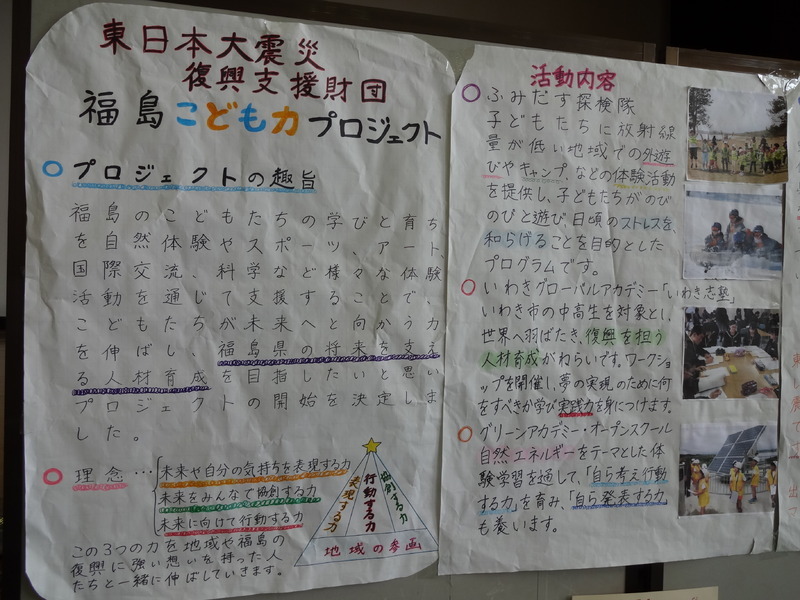 東日本大震災
復興支援財団
福島こども力プロジェクト
プロジェクトの趣旨
福島のこどもたちの学びと育ち
を自然体験やスポーツ、アート、
国際交流、科学など様々な体験
活動を通じて支援することで、
こどもたちが未来へと向かう力
を伸ばし、福島県の将来を支え
る人材育成を目指したいと思い
プロジェクトの開始を決定しま
した。
理念…
未来や自分の気持ちを表現する力
未来をみんなで協創する力
未来に向けて行動する力
表現する力
行動する力
協創する力
地域の参画
この3つの力を地域や福島の
復興に強い想いを持った人
たちと一緒に伸ばしていきます。
活動内容
ふみだす探検隊
子どもたちに放射線
量が低い地域での外遊
びやキャンプ、などの体験活動
を提供し、子どもたちがのび
のびと遊び、日頃のストレスを、
和らげることを目的とした
プログラムです。
いわきグローバルアカデミー「いわき志塾」
いわき市の中高生を対象とし、
世界へ羽ばたき、復興を担う
人材育成がねらいです。ワークショ
ップを開催し、夢の実現のために何
をすべきか学び実践力を身につけます。
グリーンアカデミー・オープンスクール
自然エネルギーをテーマとした体
験学習を通して、「自ら考え行動
する力」を育み、「自ら発表する力」
も養います。